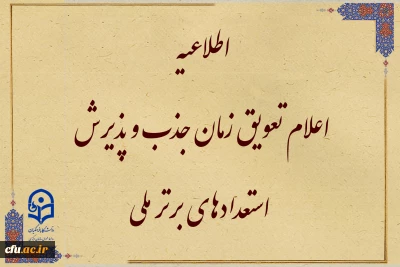 اطلاعیه
اعلام تعویق زمان جذب و پذیرش
استعدادهای برتر ملی
cfu.ac.ir